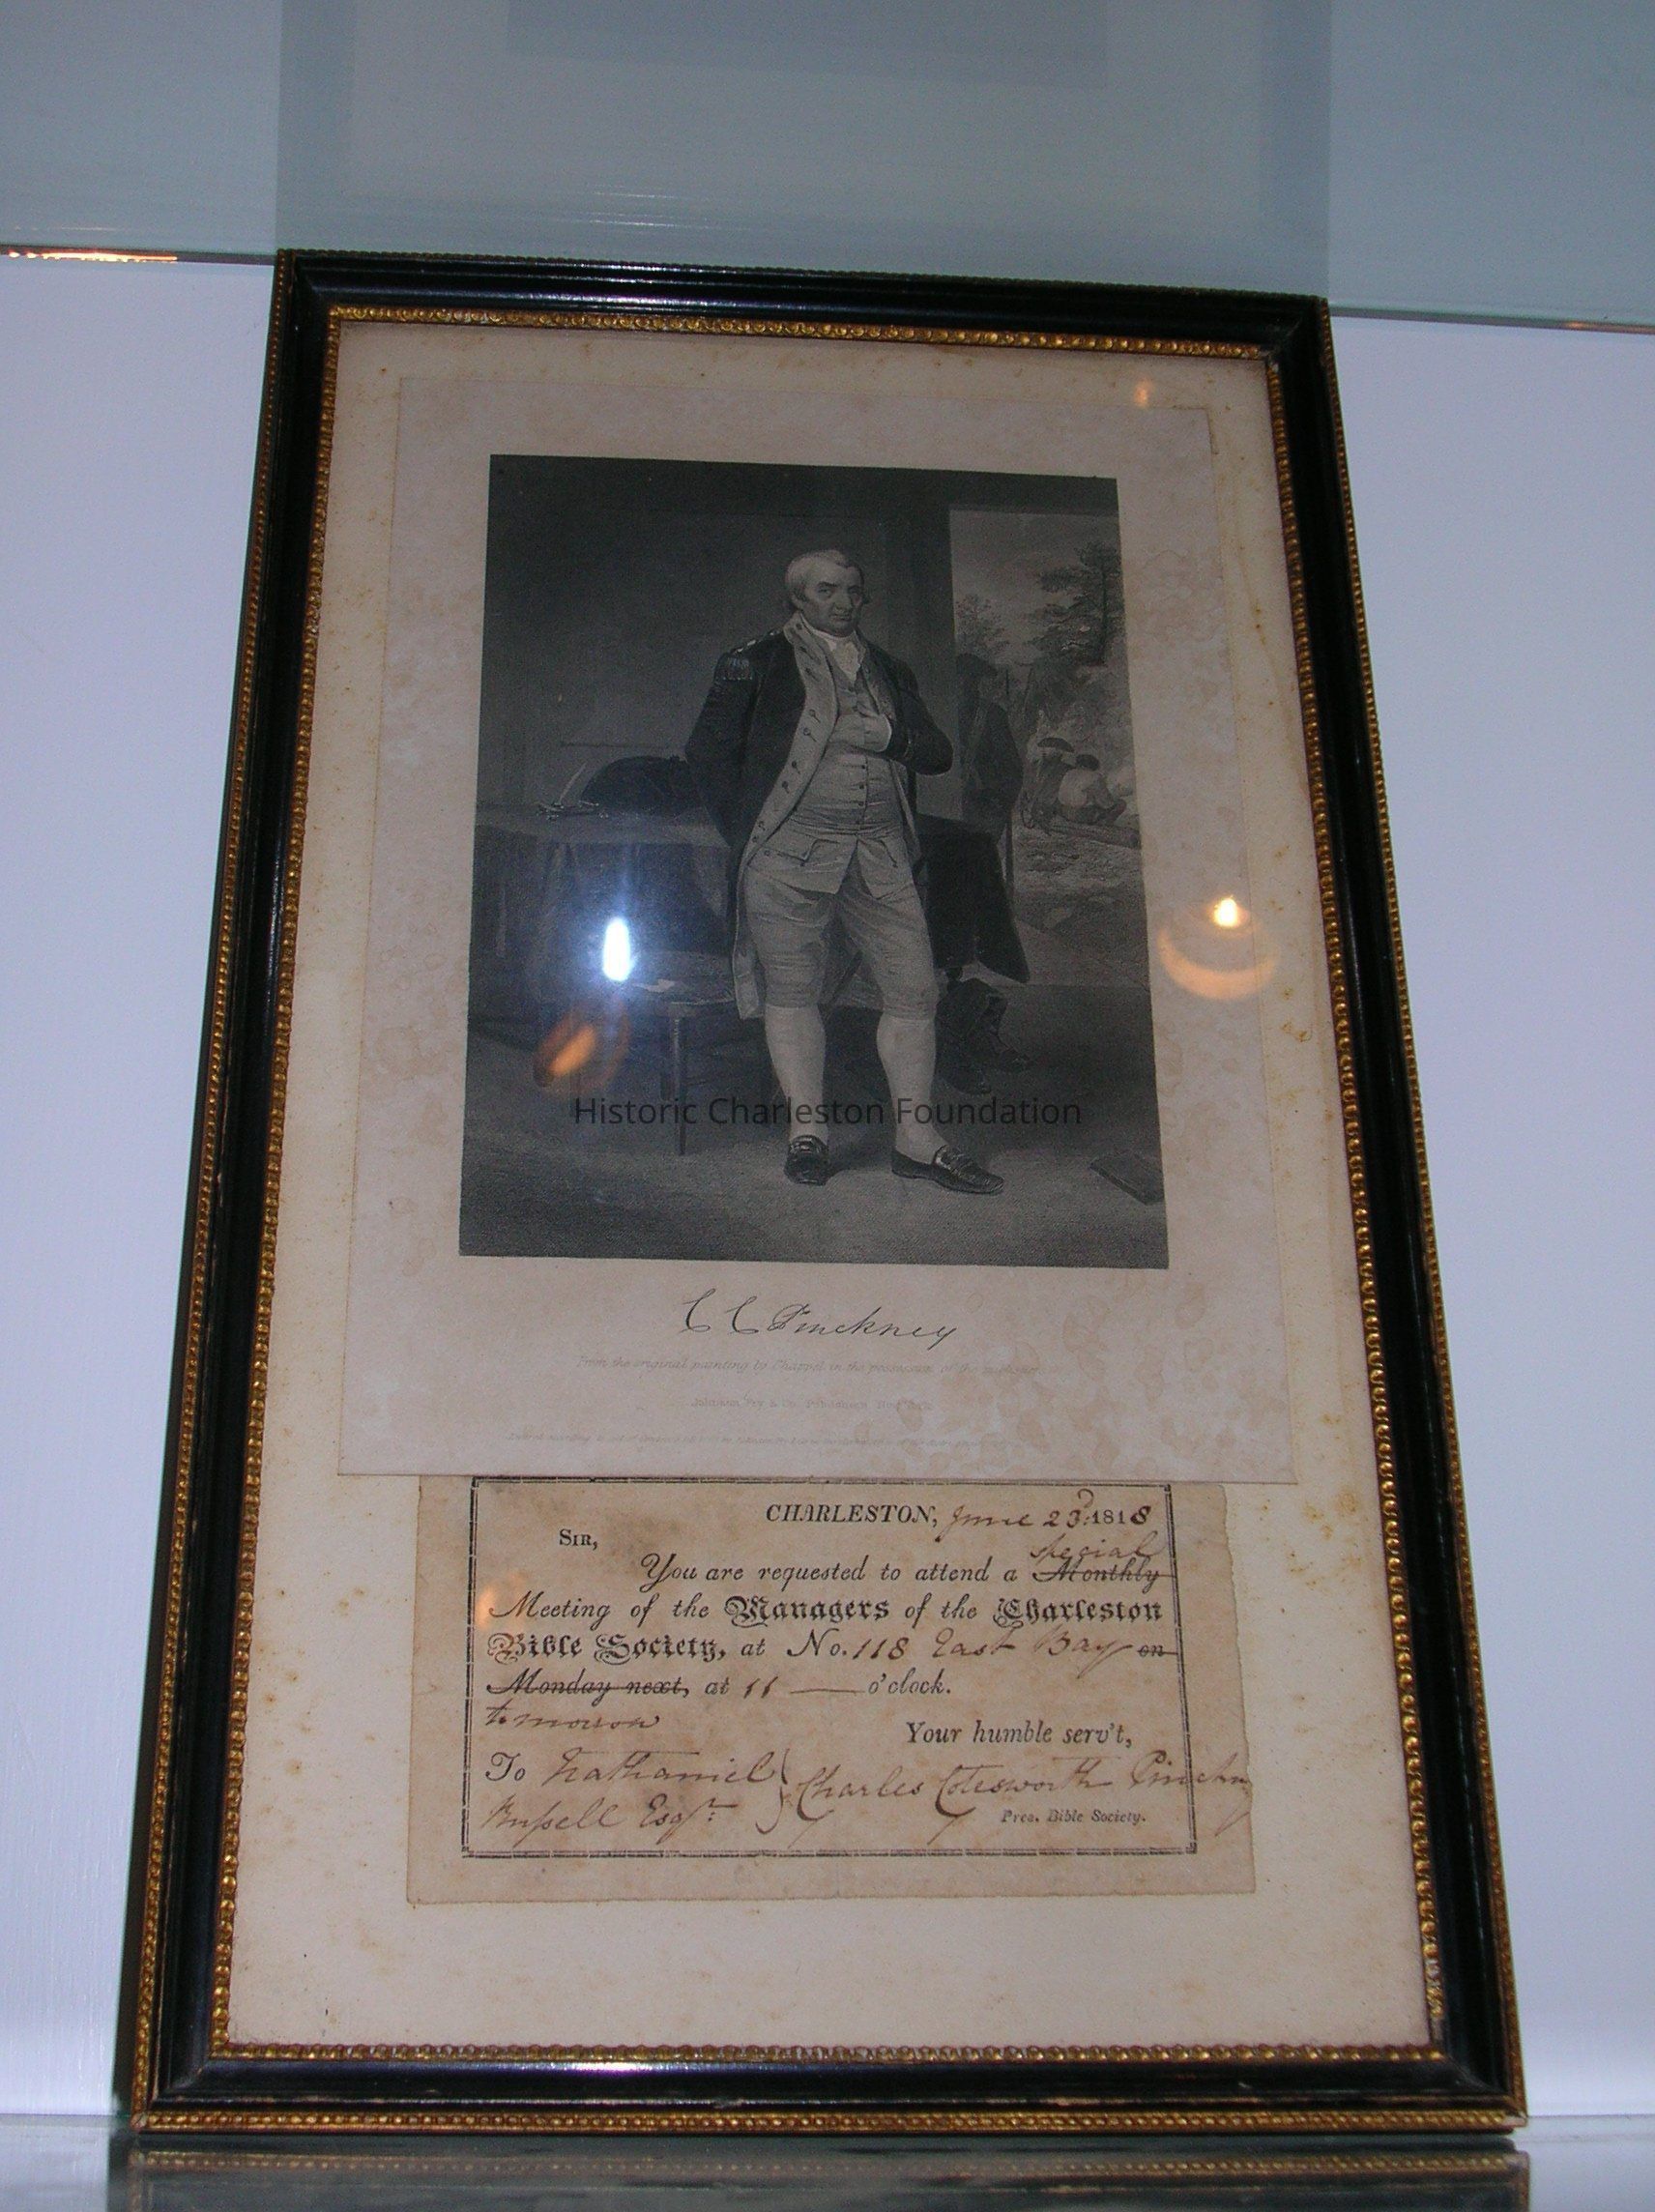 Historic Charleston Foundation
C C Pinckney
From the original painting by Chappel in the possession of the publishers
Johnson, Fry & Co. Publishers, New York
CHARLESTON, June 23d. 1818
SIR,
special
You are requested to attend a Monthly
Meeting of the Managers of the Charleston
Bible Society, at No. 118 East Bay on
Monday next, at 11 — o'clock.
to morrow
Your humble serv't,
To Nathaniel } Charles Cotesworth Pinckney
Russell Esqr:
Pres. Bible Society.